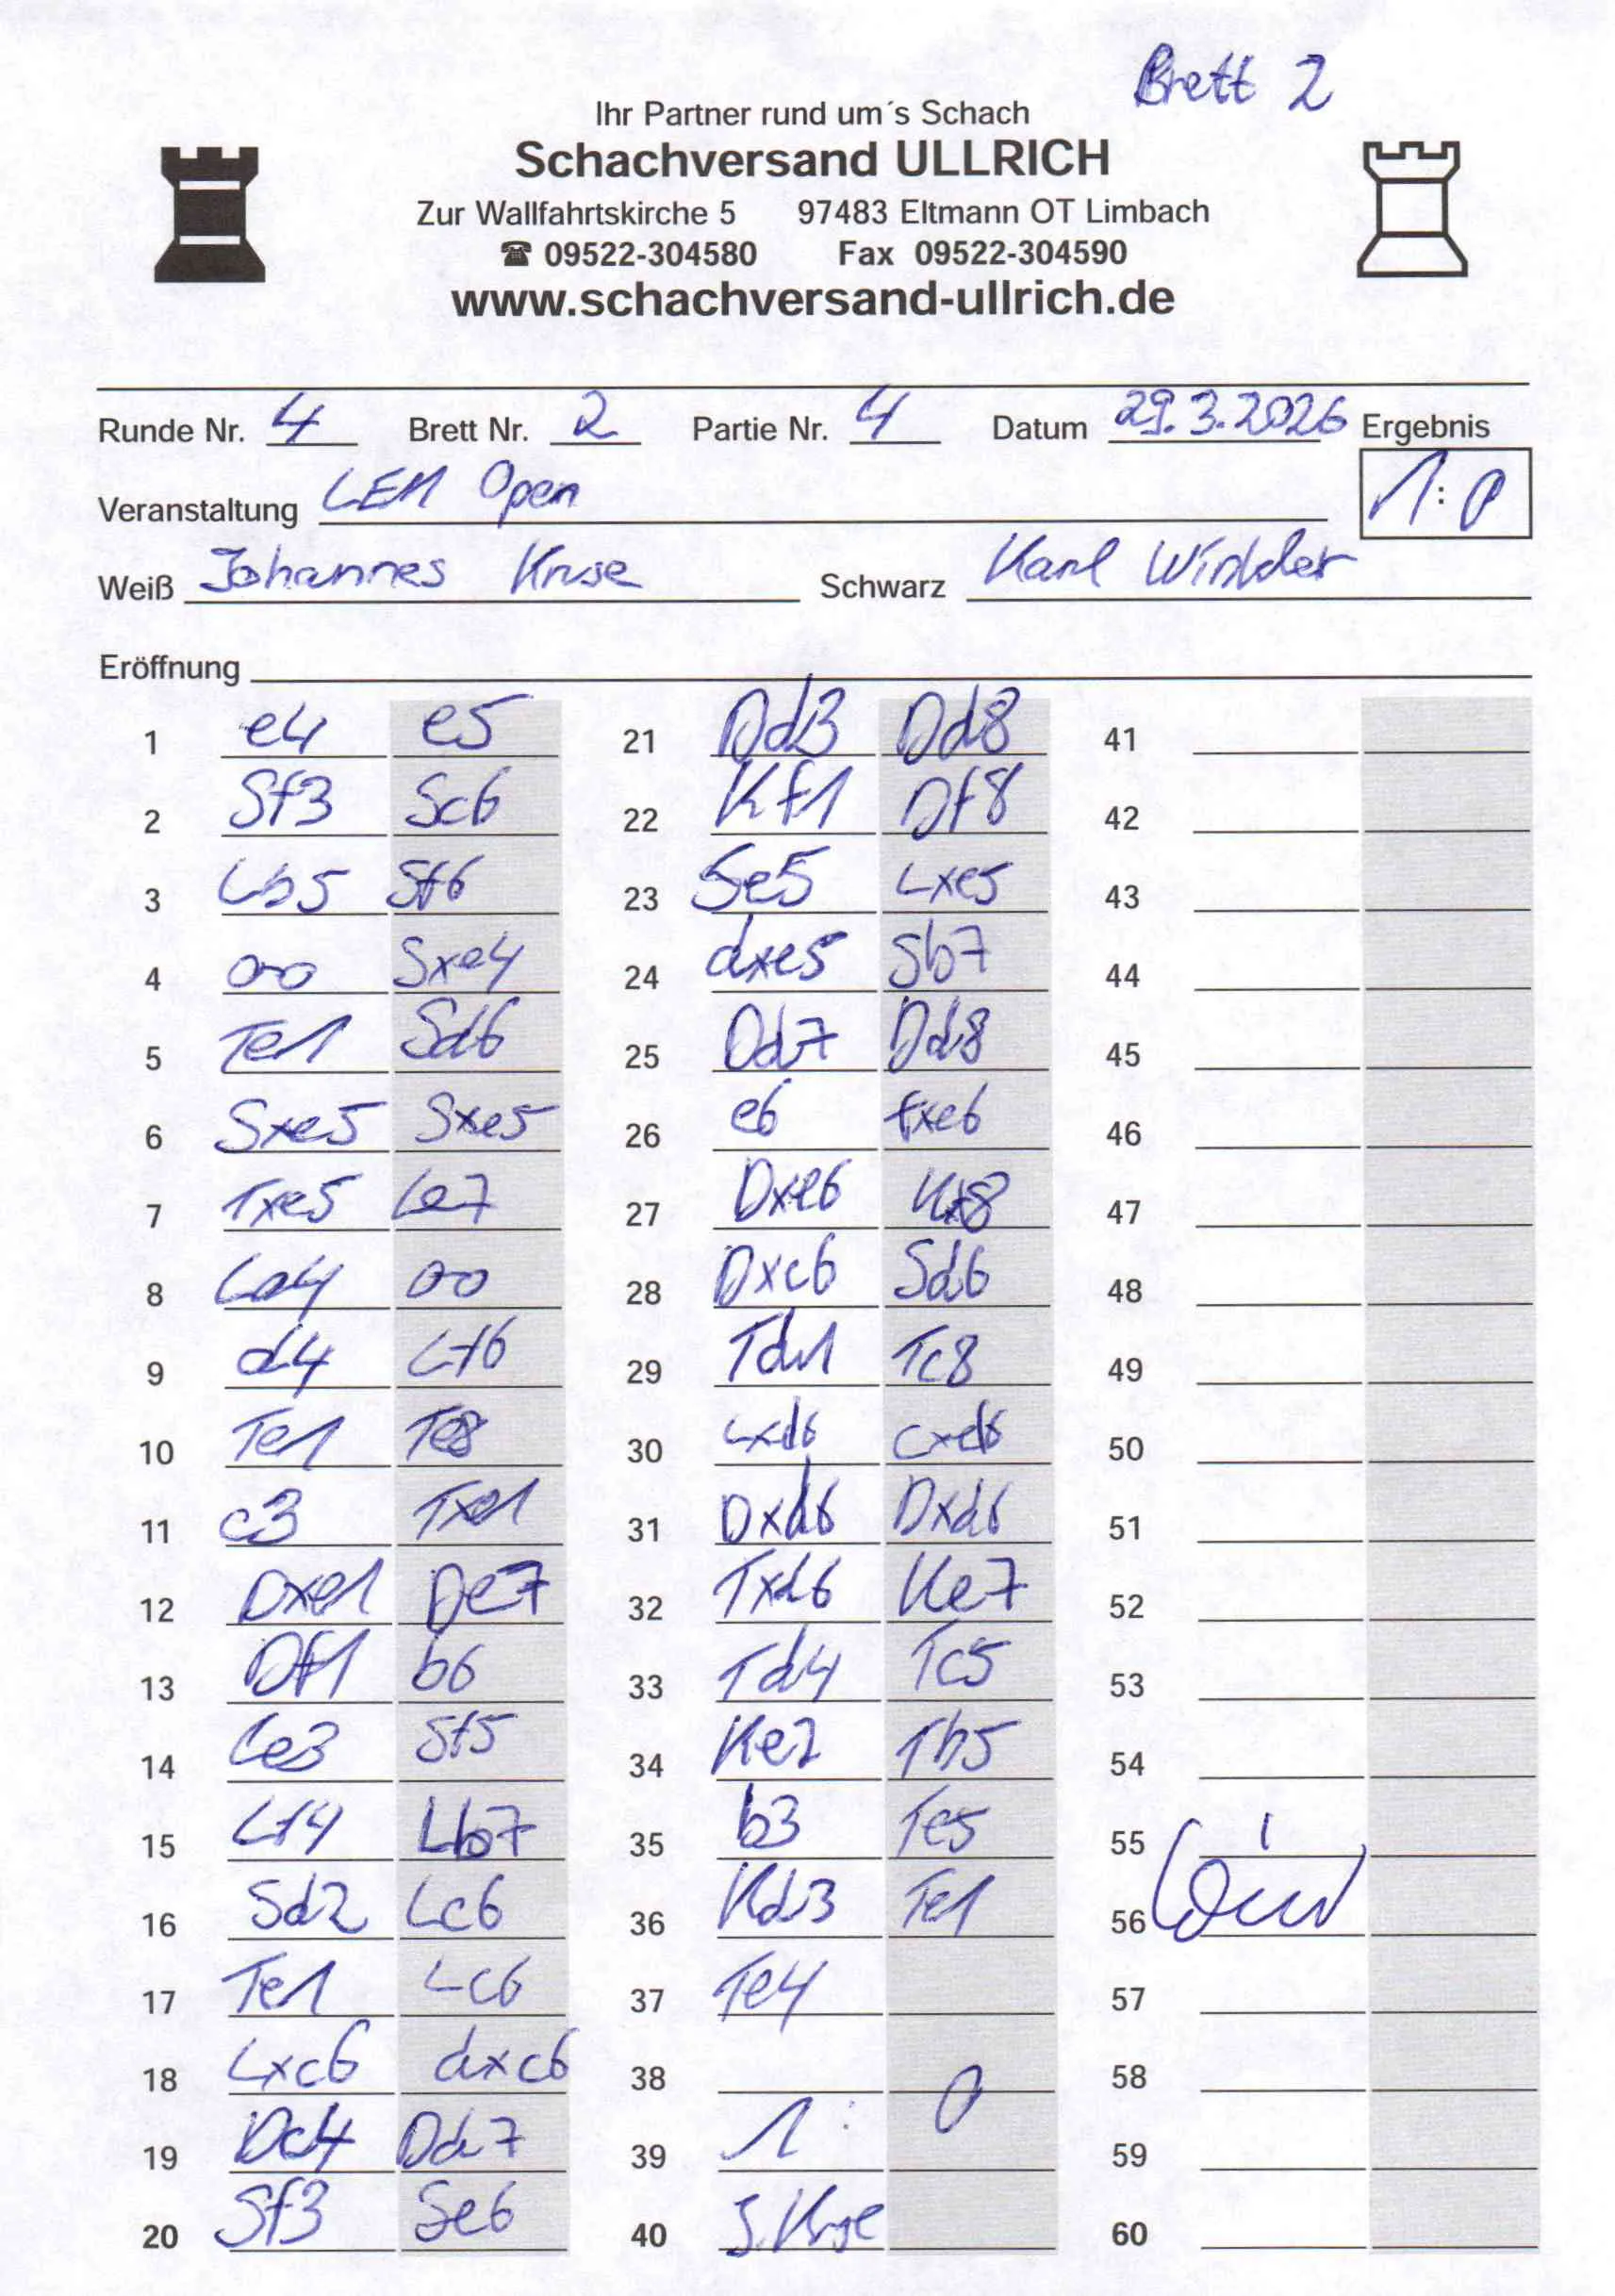 Brett 2
Ihr Partner rund um´s Schach
Schachversand ULLRICH
Zur Wallfahrtskirche 5 97483 Eltmann OT Limbach
☎ 09522-304580 Fax 09522-304590
www.schachversand-ullrich.de
Runde Nr. 4 Brett Nr. 2 Partie Nr. 4 Datum 29.3.2026 Ergebnis
Veranstaltung LEM Open 1:0
Weiß Johannes Kruse Schwarz Karl
Eröffnung
1 e4 e5 21 Dd3 Dd8 41
2 Sf3 Sc6 22 Kf1 Df8 42
3 Lb5 Sf6 23 Se5 Lxe5 43
4 oo Sxe4 24 dxe5 Sb7 44
5 Te1 Sd6 25 Dd7 Dd8 45
6 Sxe5 Sxe5 26 e6 fxe6 46
7 Txe5 Le7 27 Dxe6 Kf8 47
8 La4 oo 28 Dxc6 Sd6 48
9 d4 Lf6 29 Td1 Tc8 49
10 Te1 Te8 30 Lxd6 cxd6 50
11 c3 Txe1 31 Dxd6 Dxd6 51
12 Dxe1 De7 32 Txd6 Ke7 52
13 Df1 b6 33 Td4 Tc5 53
14 Le3 Sf5 34 Ke2 Tb5 54
15 Lf4 Lb7 35 b3 Te5 55
16 Sd2 Lc6 36 Kd3 Te1 56
17 Te1 Lc6 37 Te4 57
18 Lxc6 dxc6 38 58
19 Dc4 Dd7 39 1:0 59
20 Sf3 Se6 40 J. Kruse 60